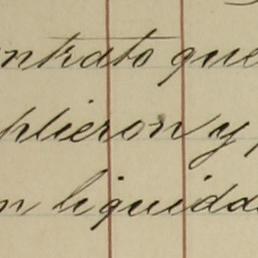 ntrato que
plieron y
n liquida